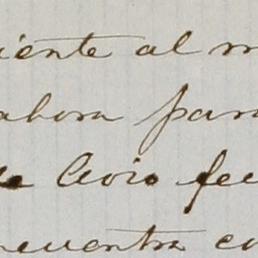 iente al m
ahora para
de Civio fe
ncuentra en